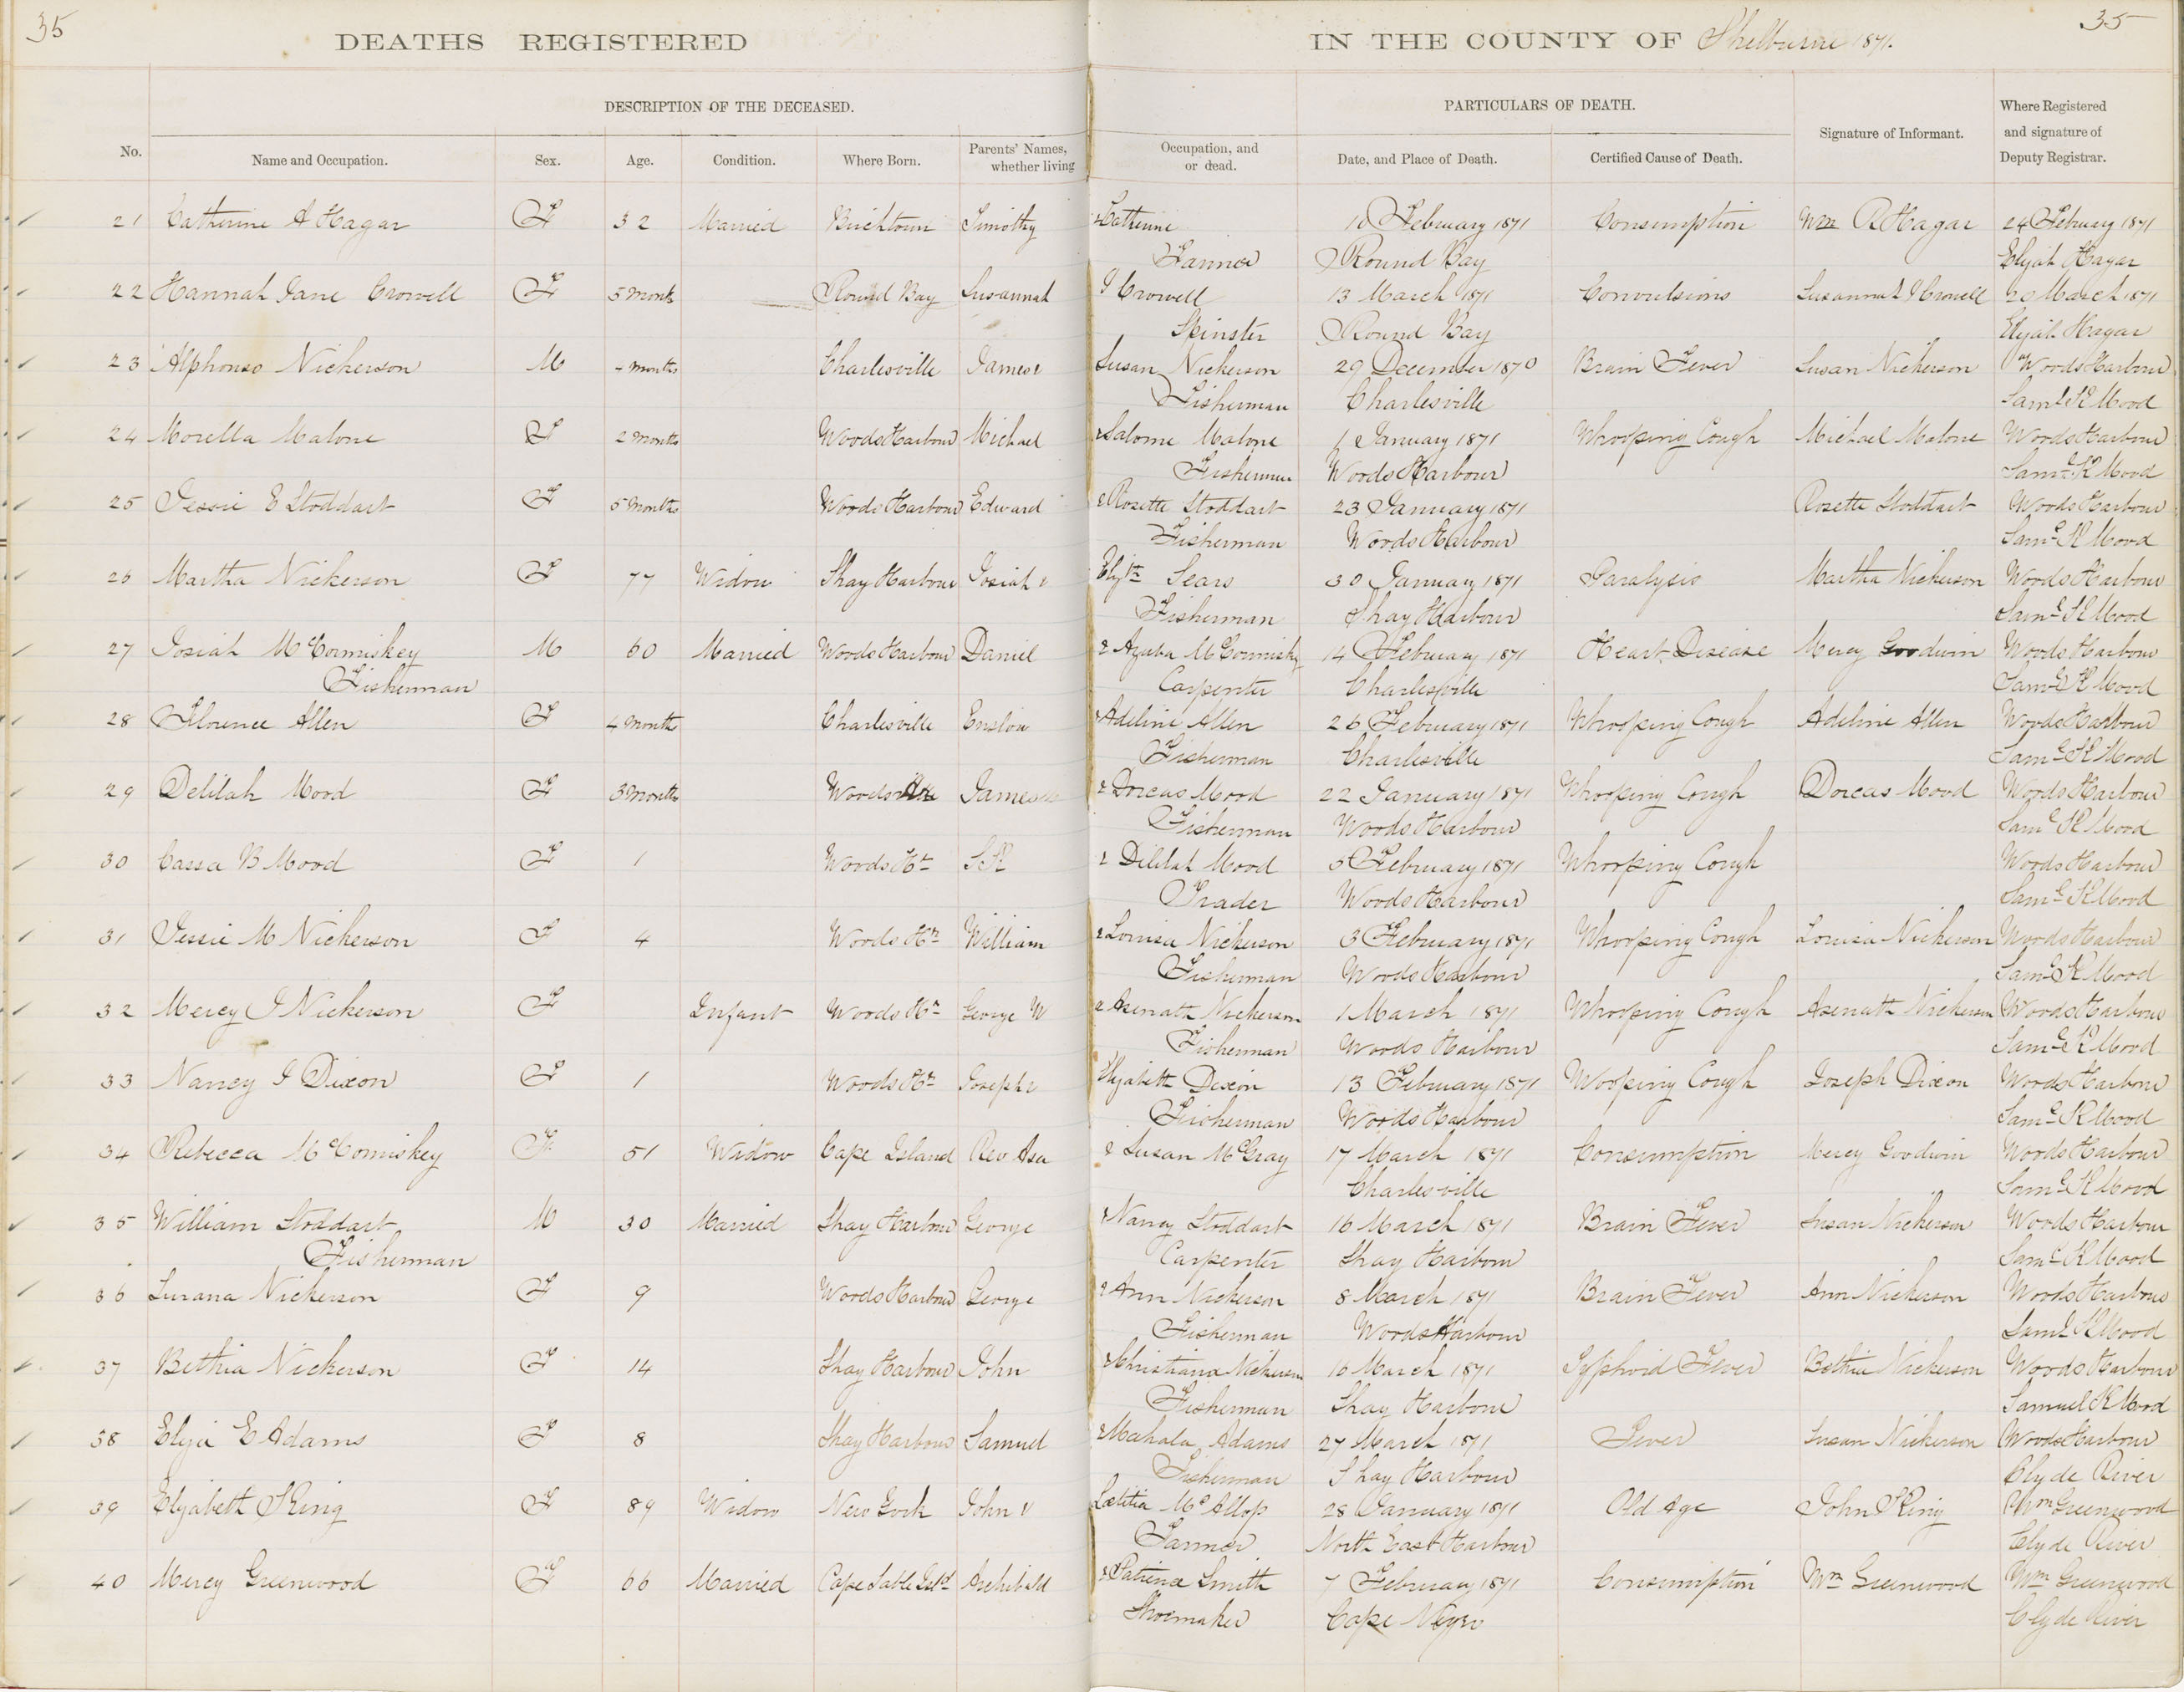 35
35
DEATHS REGISTERED IN THE COUNTY OF Shelburne 1871.
DESCRIPTION OF THE DECEASED. PARTICULARS OF DEATH.
No. Name and Occupation. Sex. Age. Condition. Where Born. Parents' Names, whether living Occupation, and or dead. Date, and Place of Death. Certified Cause of Death. Signature of Informant. Where Registered and signature of Deputy Registrar.
21 Catherine A Hagar F 32 Married Birchtown Timothy & Catherine February 1871 Consumption Wm R Hagar 24 February 1871
Farmer Round Bay Elijah Hagar
22 Hannah Jane Crowell F 5 Month Round Bay Susannah J Crowell 13 March 1871 Convulsions Susannah J Crowell 20 March 1871
Spinster Round Bay Elijah Hagar
23 Alphonso Nickerson M 4 Months Charlesville James & Susan Nickerson 29 December 1870 Brain Fever Susan Nickerson Woods Harbour
Fisherman Charlesville Saml K Mood
24 Morella Malone F 2 Months Woods Harbour Michael & Salome Malone January 1871 Whooping Cough Michael Malone Woods Harbour
Fisherman Woods Harbour Saml K Mood
25 Jessie E Stoddart F 5 Months Woods Harbour Edward & Rosette Stoddart 23 January 1871 Rosette Stoddart Woods Harbour
Fisherman Woods Harbour Saml K Mood
26 Martha Nickerson F 77 Widow Shag Harbour Josiah & Elizth Sears 30 January 1871 Paralysis Martha Nickerson Woods Harbour
Fisherman Shag Harbour Saml K Mood
27 Josiah McCormiskey M 60 Married Woods Harbour Daniel & Azuba McCormisky 14 February 1871 Heart Disease Mercy Goodwin Woods Harbour
Fisherman Carpenter Charlesville Saml K Mood
28 Florence Allen F 4 Month Charlesville Enslow & Adeline Allen 26 February 1871 Whooping Cough Adeline Allen Woods Harbour
Fisherman Charlesville Saml K Mood
29 Delilah Mood F 3 Month Woods James & Dorcas Mood 22 January 1871 Whooping Cough Dorcas Mood Woods Harbour
Fisherman Woods Harbour Saml K Mood
30 Cassa B Mood F 1 Woods Hr S K & Dililah Mood 5 February 1871 Whooping Cough Woods Harbour
Trader Woods Harbour Saml K Mood
31 Jessie M Nickerson F 4 Woods Hr William & Louisa Nickerson 3 February 1871 Whooping Cough Louisa Nickerson Woods Harbour
Fisherman Woods Harbour Saml K Mood
32 Mercy J Nickerson F Infant Woods Hr George W & Asenath Nickerson 1 March 1871 Whooping Cough Asenath Nickerson Woods Harbour
Fisherman Woods Harbour Saml K Mood
33 Nancy J Dixon F 1 Woods Hr Joseph & Elizabeth Dixon 13 February 1871 Wooping Cough Joseph Dixon Woods Harbour
Fisherman Woods Harbour Saml K Mood
34 Rebecca McComiskey F 51 Widow Cape Island Rev Asa & Susan McGray 17 March 1871 Consumption Mercy Goodwin Woods Harbour
Charlesville Saml K Mood
35 William Stoddart M 30 Married Shag Harbour George & Nancy Stoddart 16 March 1871 Brain Fever Susan Nickerson Woods Harbour
Fisherman Carpenter Shag Harbour Saml K Mood
36 Lurana Nickerson F 9 Woods Harbour George & Ann Nickerson 8 March 1871 Brain Fever Ann Nickerson Woods Harbour
Fisherman Woods Harbour Saml K Mood
37 Bethia Nickerson F 14 Shag Harbour John & Christiana Nickerson 10 March 1871 Typhoid Fever Bethia Nickerson Woods Harbour
Fisherman Shag Harbour Samuel K Mood
38 Eliza E Adams F 8 Shag Harbour Samuel & Mahala Adams 27 March 1871 Fever Susan Nickerson Woods Harbour
Fisherman Shag Harbour Clyde River
39 Elizabeth King F 89 Widow New York John & Lætitia McAllop 28 January 1871 Old Age John King Wm Greenwood
Farmer North East Harbour Clyde River
40 Mercy Greenwood F 66 Married Cape Sable Isld Archibald & Patience Smith 7 February 1871 Consumption Wm Greenwood Wm Greenwood
Shoemaker Cape Negro Clyde River